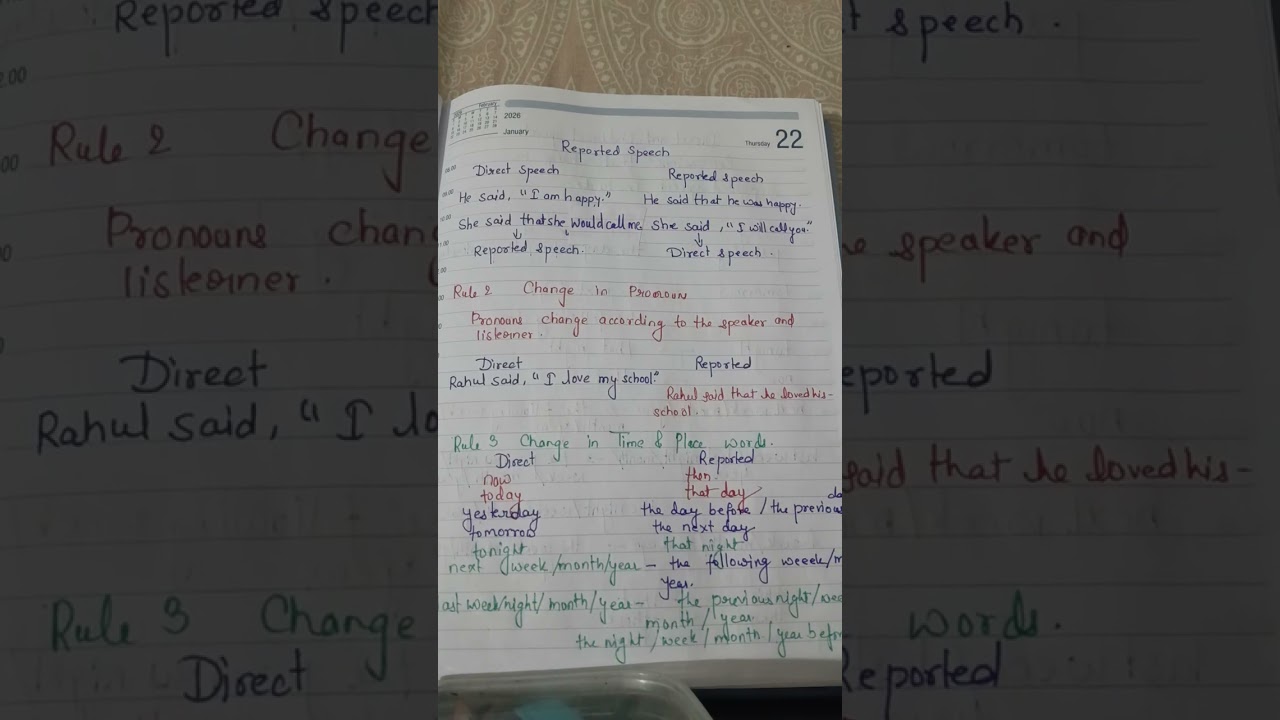 2026
January
Thursday 22
Reported Speech
Direct Speech Reported speech
He said, "I am happy." He said that he was happy.
She said that she would call me She said, "I will call you."
Reported speech. Direct speech.
Rule 2 Change in Pronoun
Pronouns change according to the speaker and
Direct Reported
Rahul said, "I love my school."
Rahul said that he loved his-
school.
Rule 3 Change in Time & Place words.
Direct Reported
now then.
today that day
yesterday the day before / the previous
tomorrow the next day
tonight that night
next week/month/year - the following weeek/
year.
week/night/month/year- the previous night/
month/year
the night/week/month/year